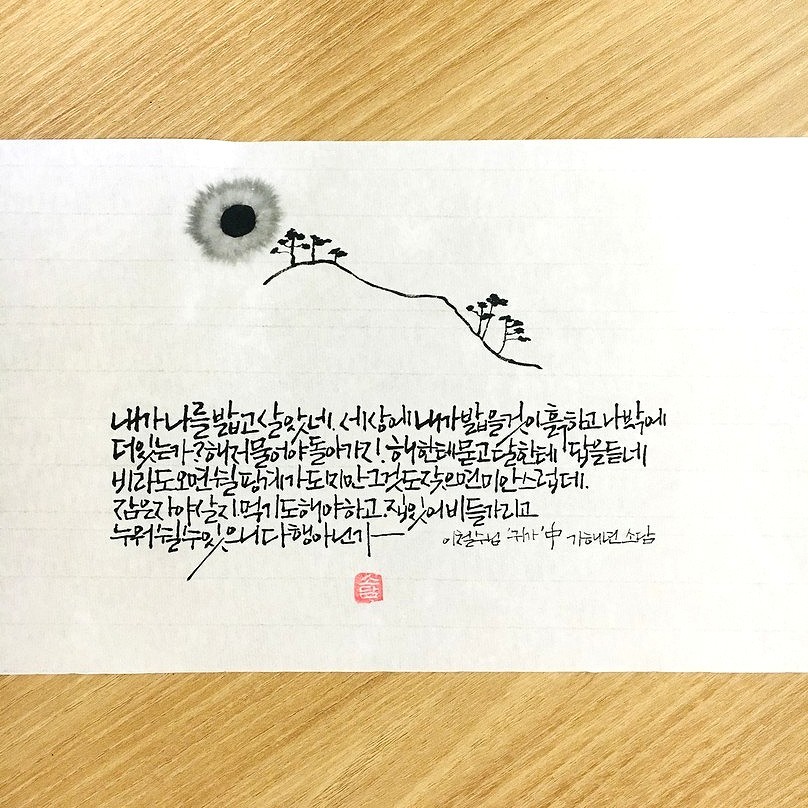 내가 나를 밟고 살았네. 세상에 내가 밟을 것이 흙하고 나밖에
더 있는가? 해 저물어야 돌아가지. 해한테 묻고 달한테 답을 듣네
비라도 오면 쉴 핑계가 되지만 그것도 잦으면 미안스럽데.
잠은 자야 살지. 먹기도 해야 하고. 집 있어 비 들 가리고
누워 쉴 수 있으니 다행 아닌가
이철수님 '귀가' 中 가해년 소담
소담